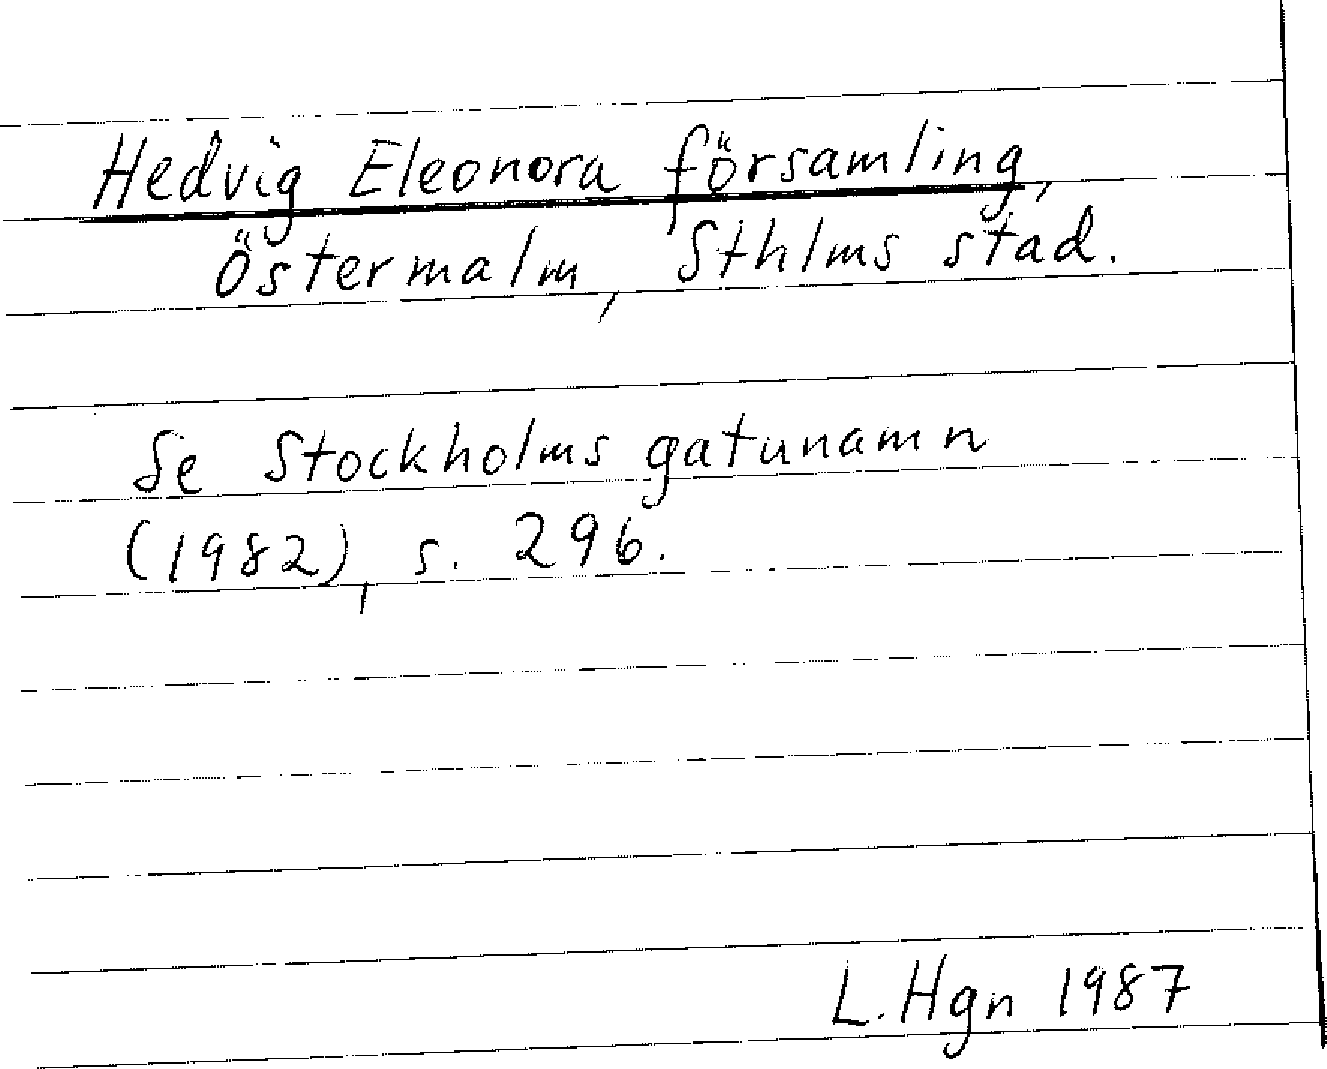 Hedvig Eleonora församling,
Östermalm, Sthlms stad.
Se Stockholms gatunamn
(1982), s. 296.
L. Hgn 1987